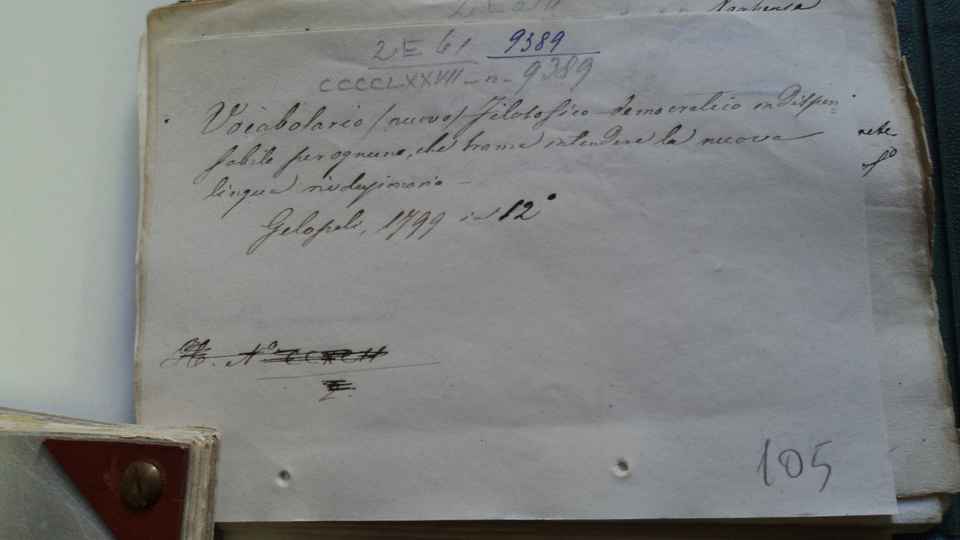 2 E 61 9389
CCCCLXXVIII - n - 9389
Vocabolario (nuovo) filosofico democratico indispen=
sabile per ognuno, che brama intendere la nuova
lingua
Gelopoli, 1799 in 12°
N°
105